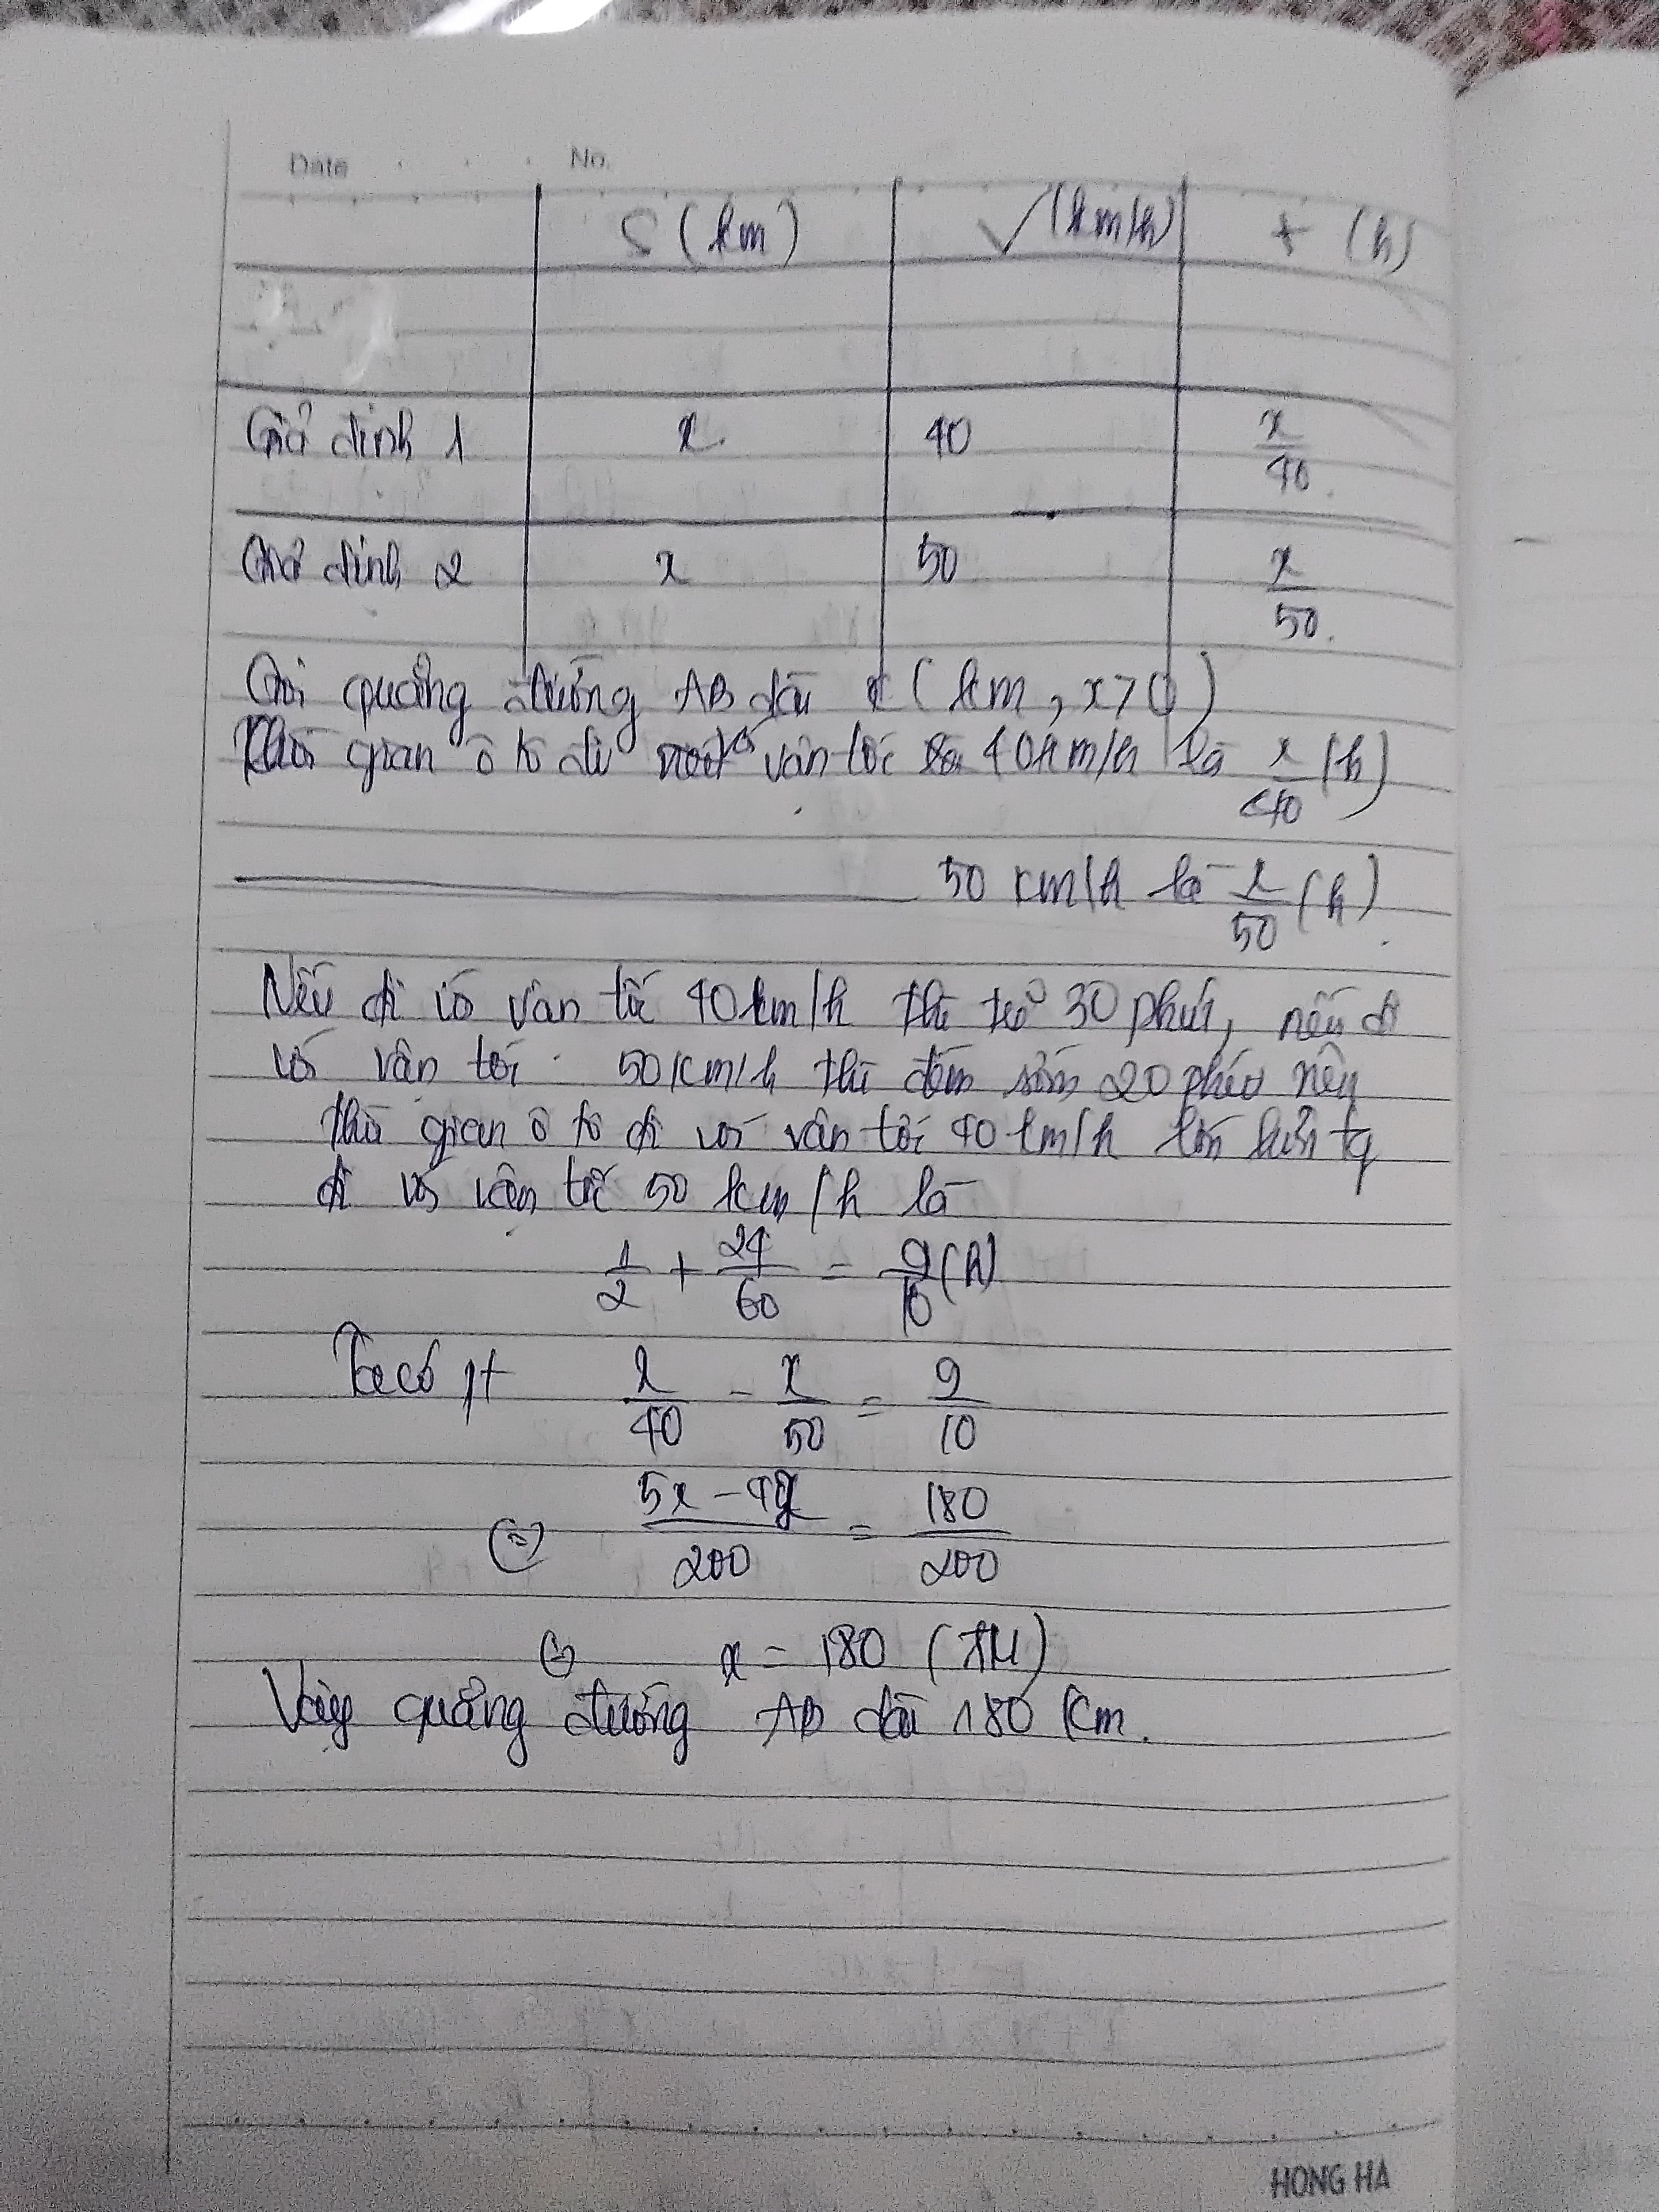 Date No.
S (km) V (km/h) t (h)
Giả định 1 x 40 x/40
Giả định 2 x 50 x/50
Gọi quãng đường AB dài x (km, x>0)
Thời gian ô tô đi với vận tốc là 40km/h là x/40 (h)
50 km/h là x/50 (h)
Nếu đi với vận tốc 40km/h thì trễ 30 phút, nếu đi
với vận tốc 50km/h thì đến sớm 20 phút nên
thời gian ô tô đi với vận tốc 40 km/h lớn hơn tg
đi với vận tốc 50 km/h là
1/2 + 24/60 = 9/10 (h)
Ta có pt x/40 - x/50 = 9/10
(=) 5x - 4x/200 = 180/200
(=) x = 180 (TM)
Vậy quãng đường AB dài 180 km.
HONG HA